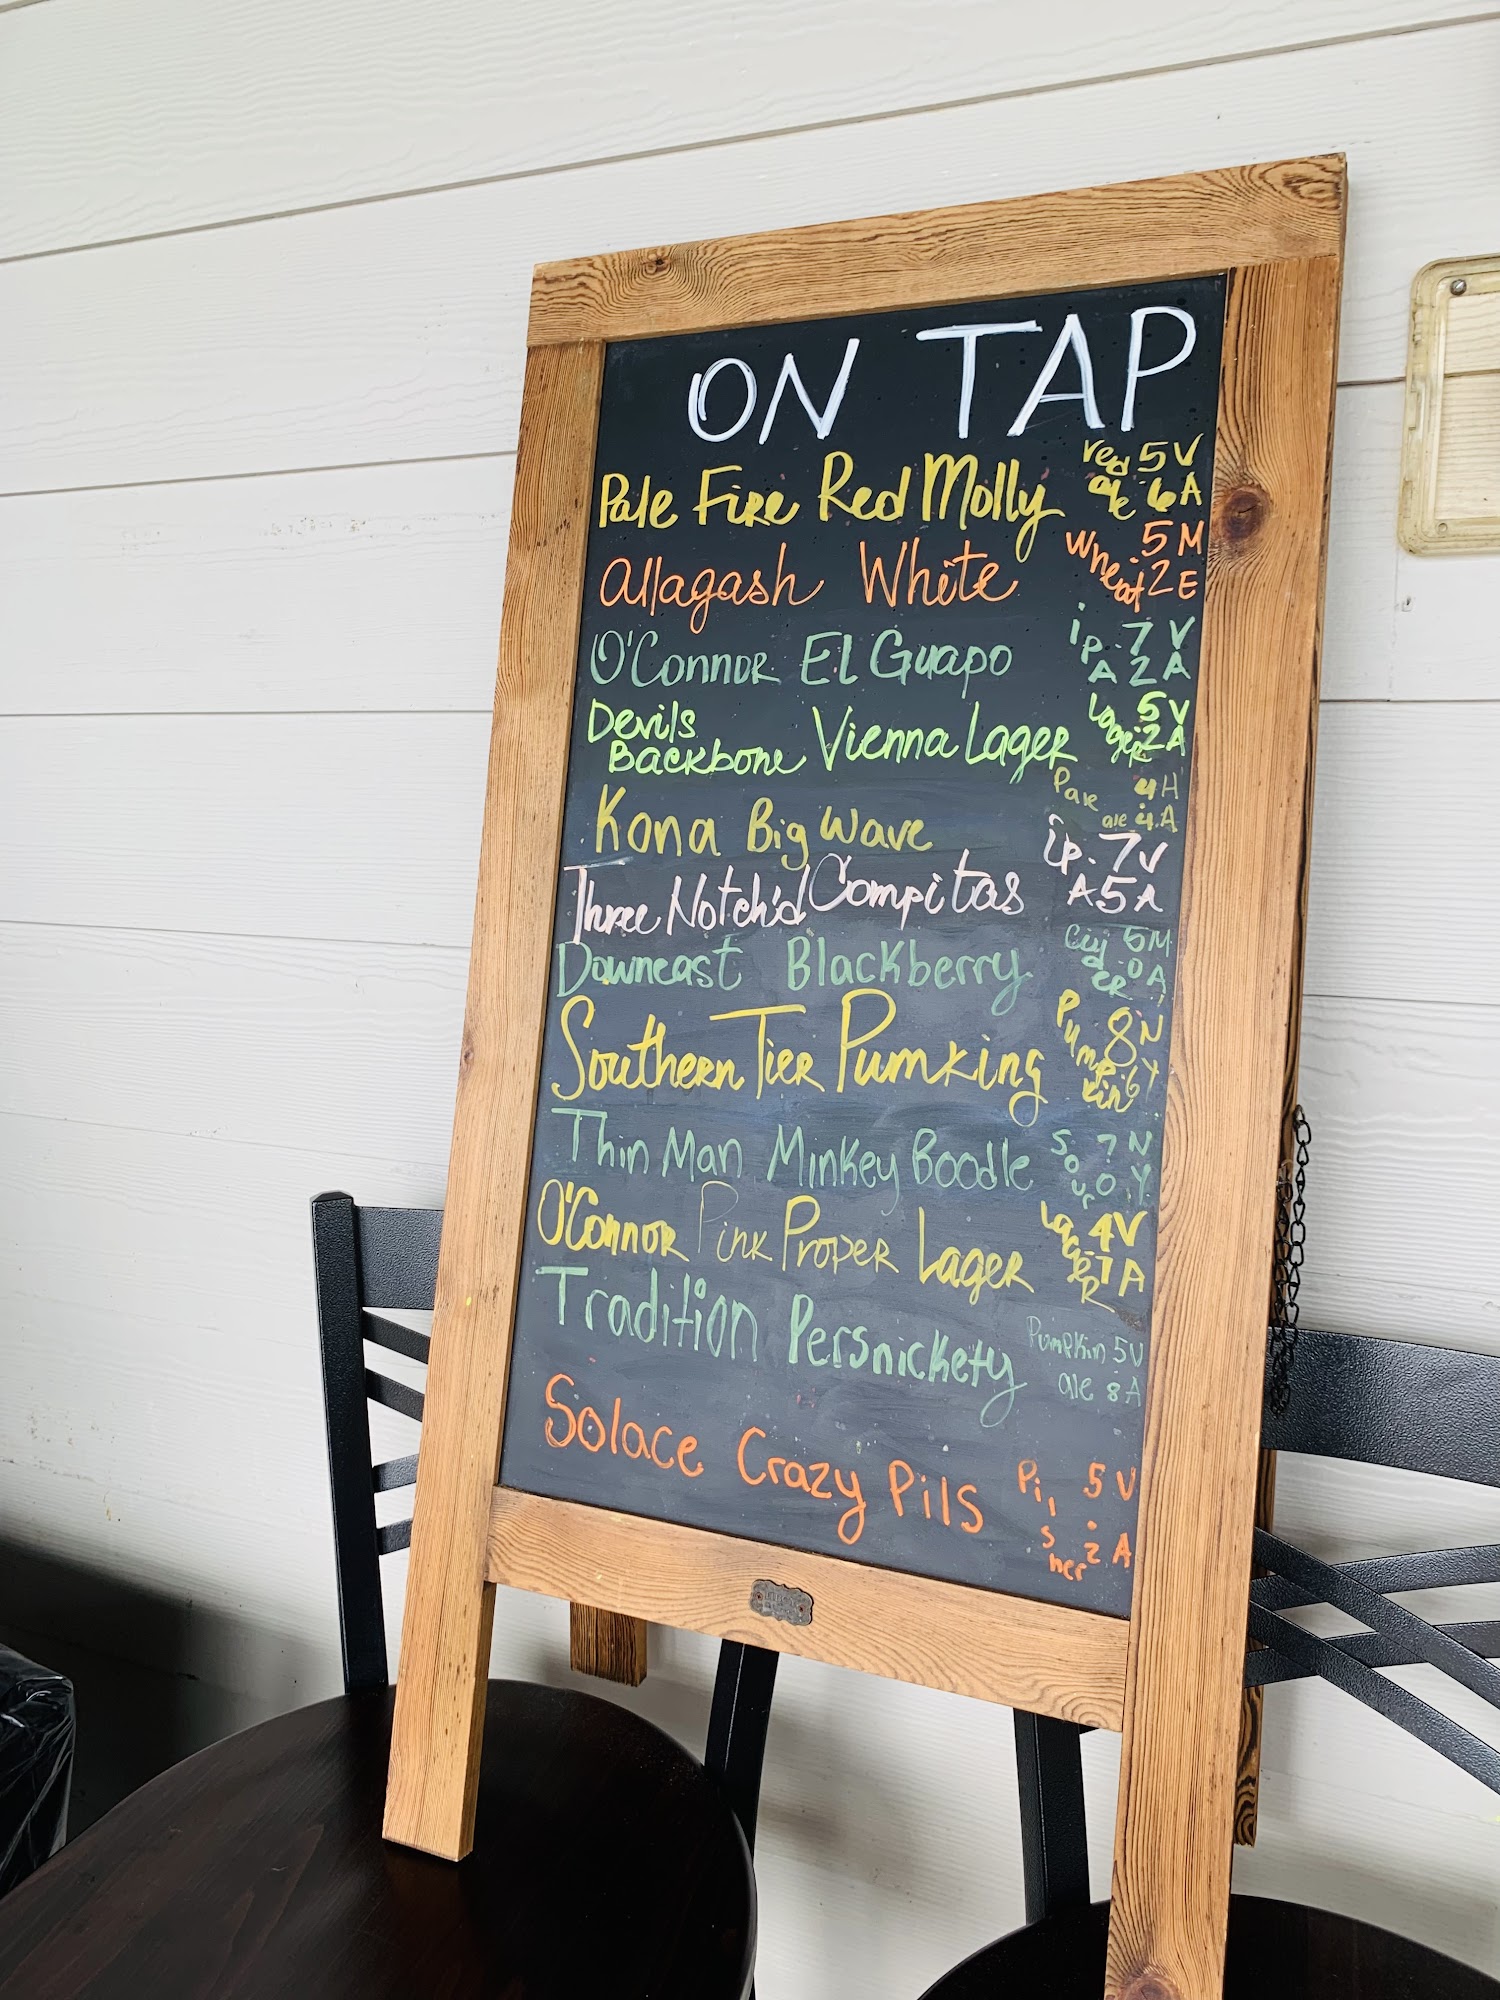 ON TAP
Pale Fire Red Molly red ale 5.6 VA
Allagash White Wheat 5.2 ME
O'Connor El Guapo ipA 7.2 VA
Devils Backbone Vienna Lager Lager 5.2 VA
Kona Big Wave Pale ale 4.4 HA
Three Notch'd Compitas ipA 7.5 VA
Downeast Blackberry CidER 5.0 MA
Southern Tier Pumking Pumpkin 8.6 NY
Thin Man Minkey Boodle Sour 7.0 NY
O'Connor Pink Proper Lager LageR 4.7 VA
Tradition Persnickety Pumpkin ale 5.8 VA
Solace Crazy Pils Pilsner 5.2 VA